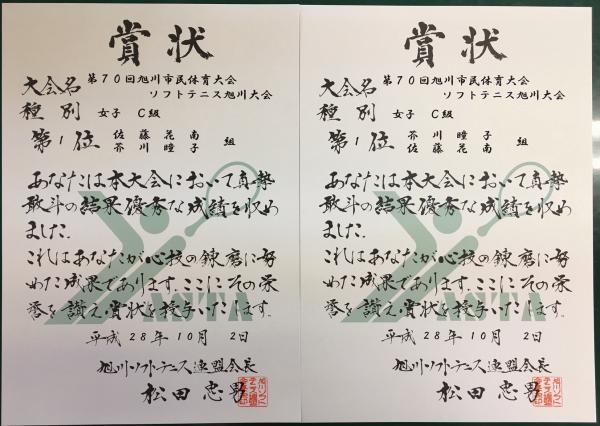 賞状
大会名 第70回旭川市民体育大会
ソフトテニス旭川大会
種別 女子 C級
第1位 佐藤花南
芥川瞳子 組
あなたは本大会において真摯
敢斗の結果優秀な成績を収め
ました
これはあなたが心技の錬磨に努
めた成果であります。ここにその栄
誉を讃え賞状を授与いたします。
平成28年10月2日
旭川ソフトテニス連盟会長
松田忠男
賞状
大会名 第70回旭川市民体育大会
ソフトテニス旭川大会
種別 女子 C級
第1位 芥川瞳子
佐藤花南 組
あなたは本大会において真摯
敢斗の結果優秀な成績を収め
ました
これはあなたが心技の錬磨に努
めた成果であります。ここにその栄
誉を讃え賞状を授与いたします。
平成28年10月2日
旭川ソフトテニス連盟会長
松田忠男